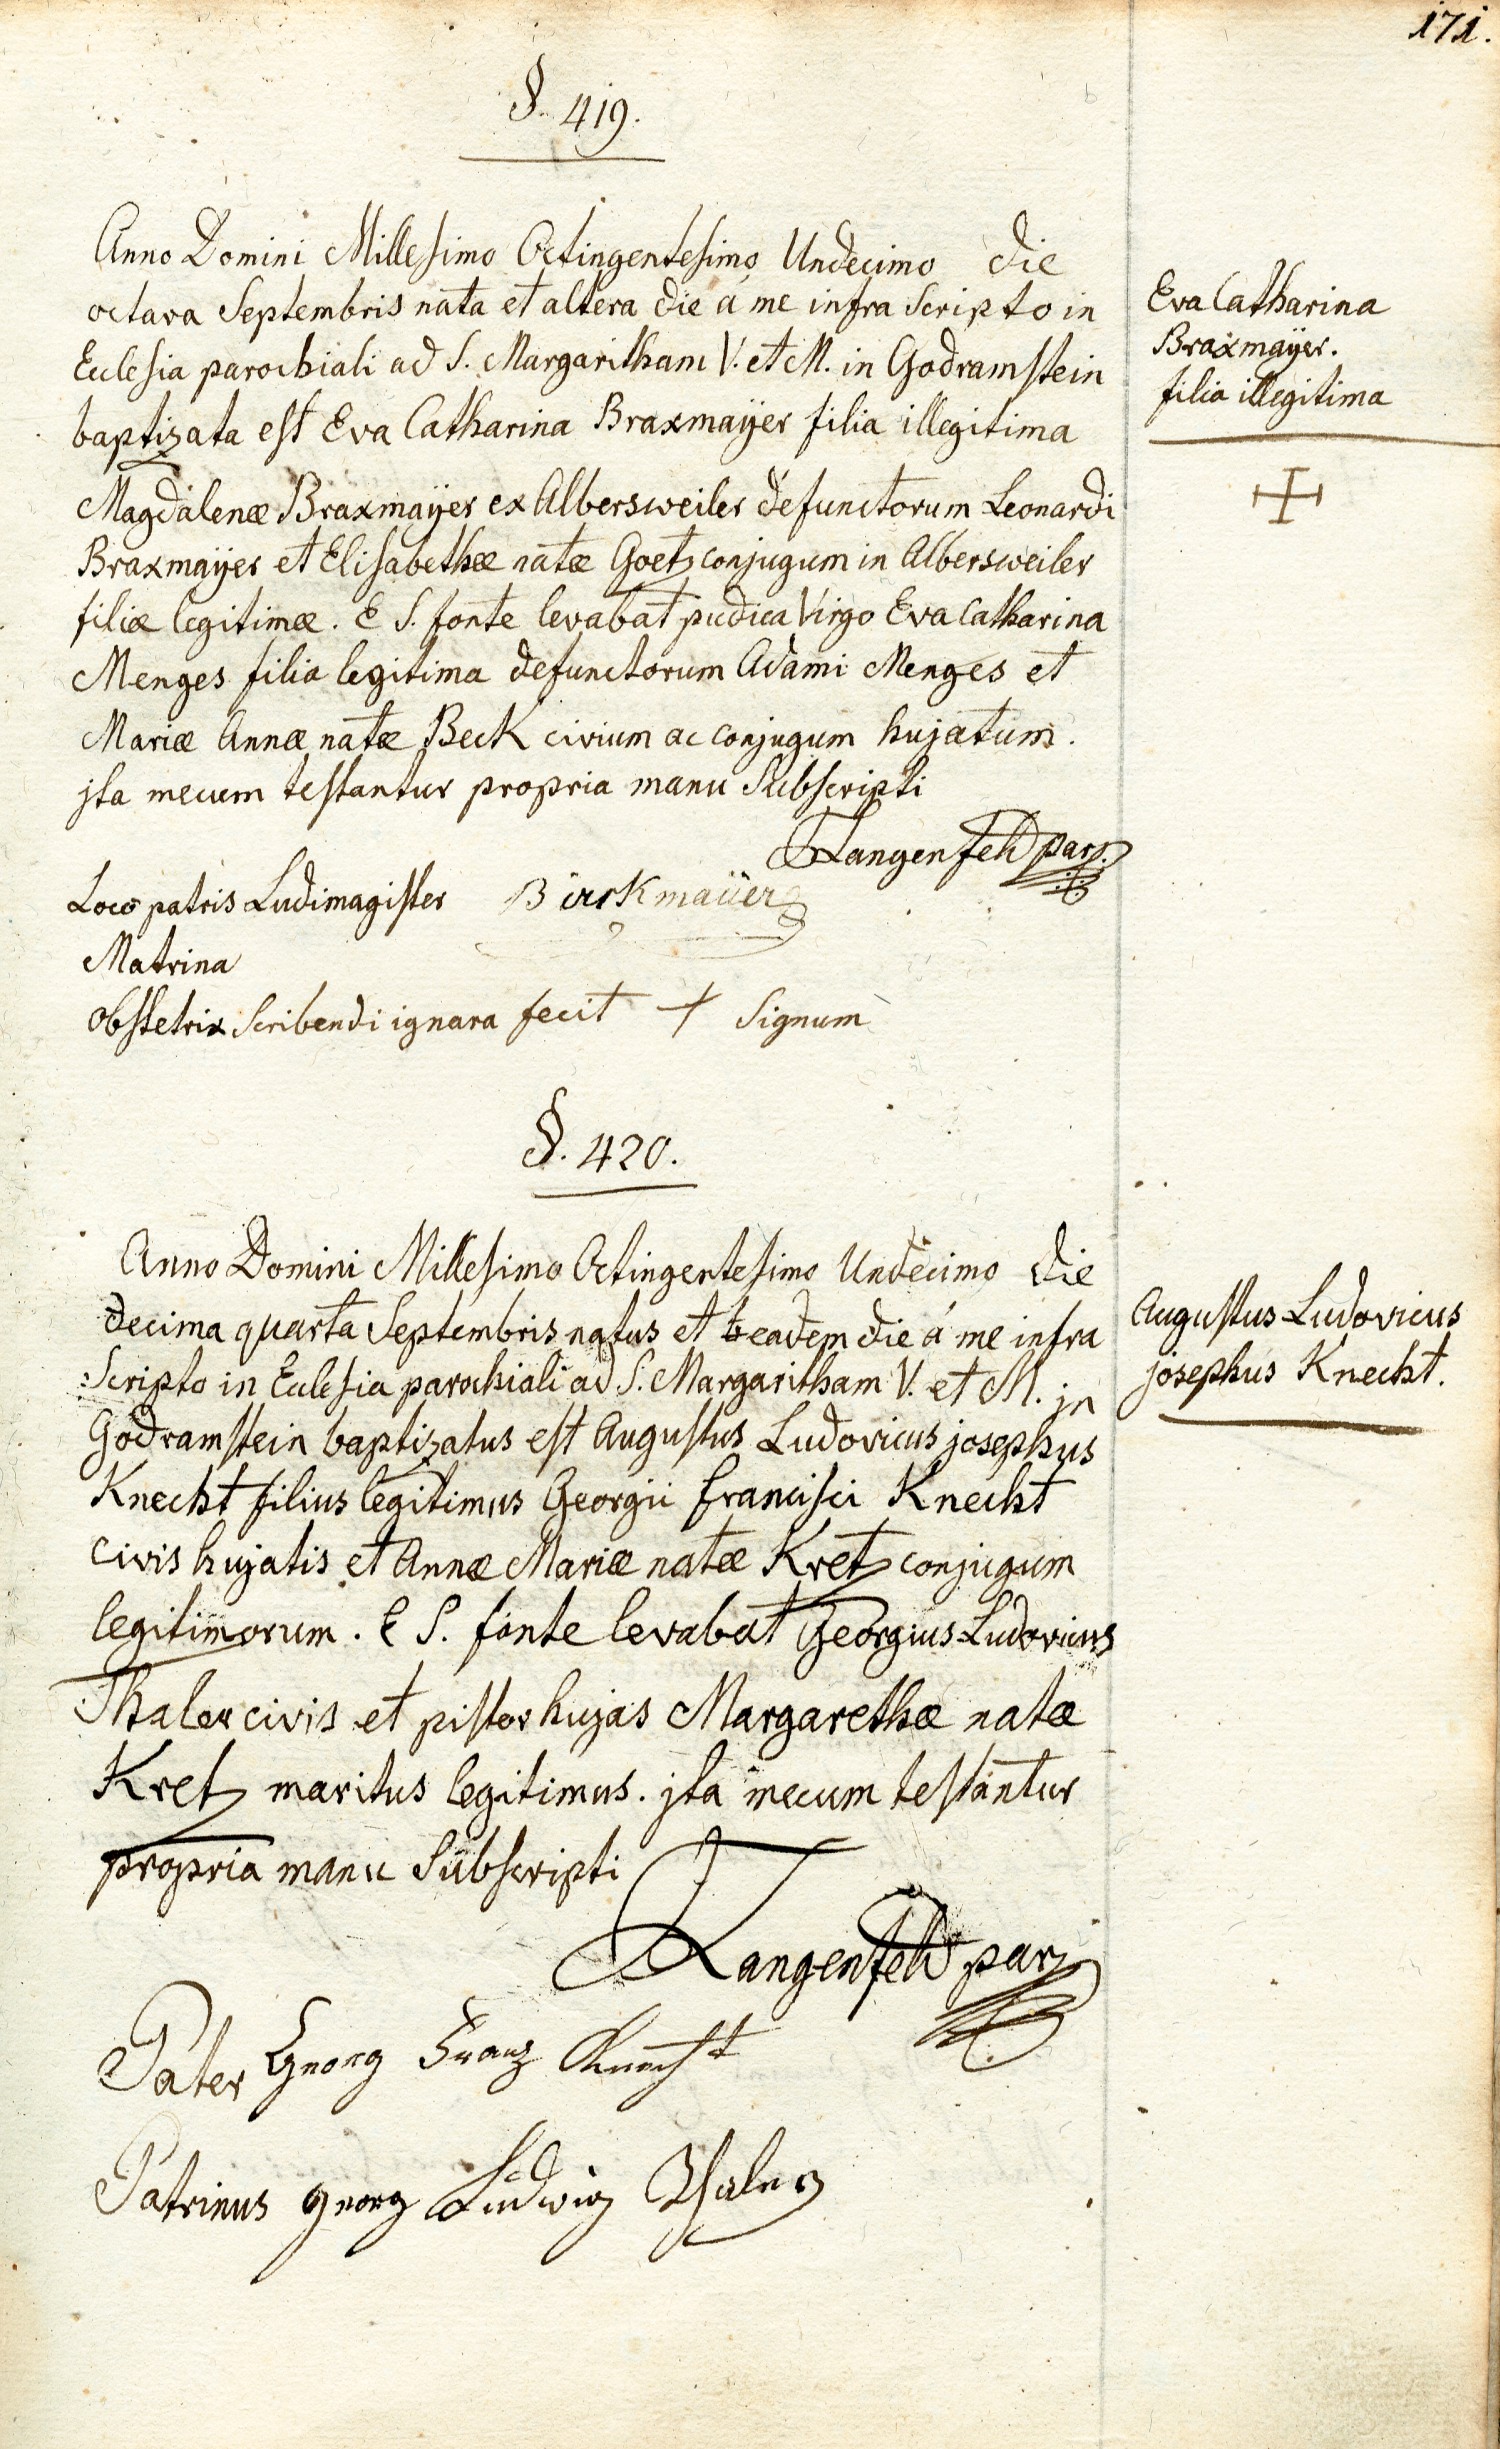 171.
§. 419.
Anno Domini Millesimo Octingentesimo Undecimo die
octava Septembris nata et altera die á me infra scripto in
Ecclesia parochiali ad S. Margaritham V. et M. in Godramstein
baptizata est Eva Catharina Braxmaÿer filia illegitima
Magdalenæ Braxmaÿer ex Albersweiler defunctorum Leonardi
Braxmaÿer et Elisabethæ natæ Goetz conjugum in Albersweiler
filiæ legitimæ. E S. fonte levabat pudica Virgo Eva Catharina
Menges filia legitima defunctorum Adami Menges et
Mariæ Annæ natæ Beck civium ac conjugum hujatum.
jta mecum testantur propria manu Subscripti
Langenfeld par.
Loco patris Ludimagister Birkmaÿer
Matrina
Obstetrix Scribendi ignara fecit + Signum
Eva Catharina
Braxmaÿer.
filia illegitima
§. 420.
Anno Domini Millesimo Octingentesimo Undecimo die
decima quarta Septembris natus et eadem die á me infra
Scripto in Ecclesia parochiali ad S. Margaritham V. et M. jn
Godramstein baptizatus est Augustus Ludovicus josephus
Knecht filius legitimus Georgii francisci Knecht
civis hujatis et Annæ Mariæ natæ Kretz conjugum
legitimorum. E S. fonte levabat Georgius Ludovicus
Thaler civis et pistor hujas Margarethæ natæ
Kretz maritus legitimus. jta mecum testantur
propria manu Subscripti
Langenfeld par
Pater Georg Franz Knecht
Patrinus Georg Ludwig Thaler
Augustus Ludovicus
josephus Knecht.